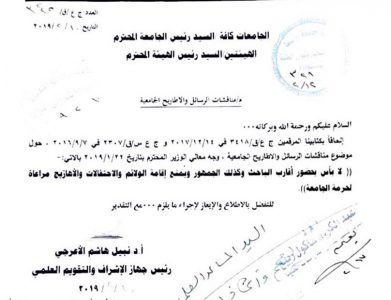 العدد ج ع/ق/
التاريخ ٢٠١٩/٢/١٠
الجامعات كافة السيد رئيس الجامعة المحترم
الهيئتين السيد رئيس الهيئة المحترم
٣٢٦
٢/١٢
م/مناقشات الرسائل والاطاريح الجامعية
السلام عليكم ورحمة الله وبركاته...
إلحاقاً بكتابينا المرقمين ج ع/ق/٣٤١٨ في ٢٠١٧/١٢/١٤ و ج ع س/ق/٢٣٠٧ في ٢٠١٦/٩/٧ ، حول
موضوع مناقشات الرسائل والاطاريح الجامعية ، وجه معالي الوزير المحترم بتاريخ ٢٠١٩/١/٢٢ بالاتي:-
(( لا بأس بحضور أقارب الباحث وكذلك الجمهور ويمنع إقامة الولائم والاحتفالات والأهازيج مراعاة
لحرمة الجامعة)).
للتفضل بالاطلاع والإيعاز لإجراء ما يلزم ...مع التقدير
أ.د نبيل هاشم الأعرجي
رئيس جهاز الإشراف والتقويم العلمي